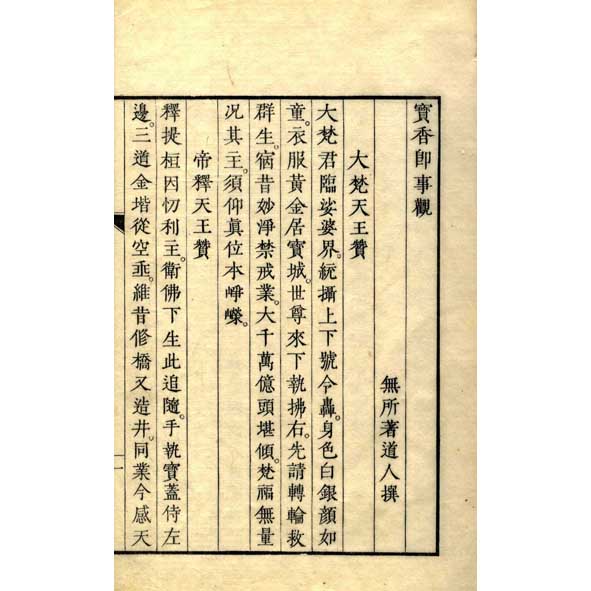 寶香卽事觀
無所著道人撰
大梵天王贊
大梵君臨娑婆界。統攝上下號令轟。身色白銀顏如
童。衣服黃金居寶城。世尊來下執拂右。先請轉輪救
群生。宿昔妙淨禁戒業。大千萬億頭堪傾。梵福無量
况其主。須仰眞位本崢嶸。
帝釋天王贊
釋提桓因忉利主。衛佛下生此追隨。手執寶蓋侍左
邊。三道金堦從空垂。維昔修橋又造井。同業今感天
一